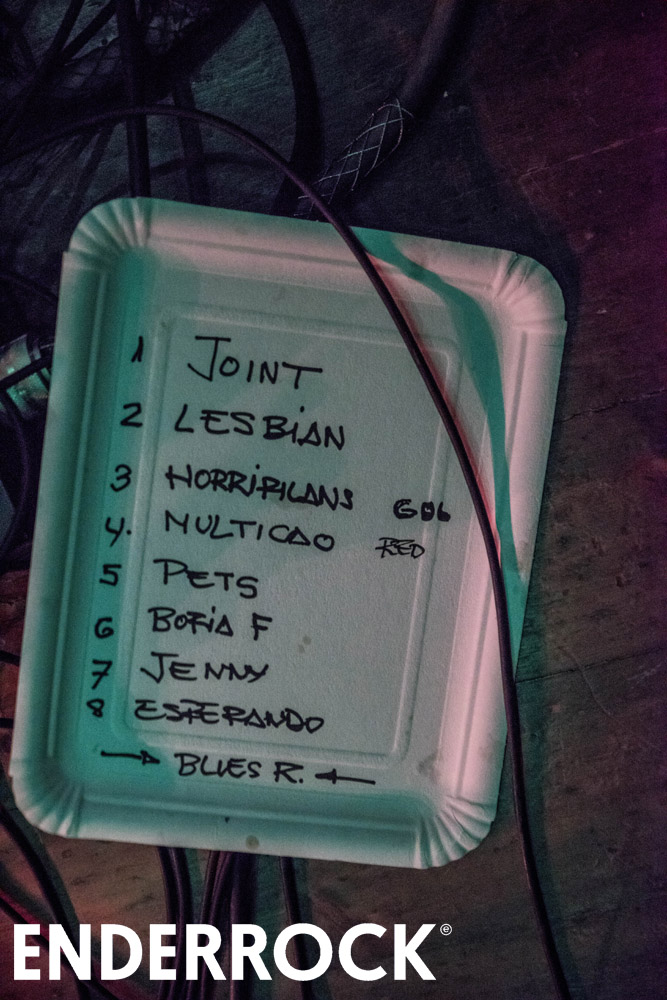 1 JOINT
2 LESBiAN
3 HORRiPiLANS
4. MULTICAO RED
5 PETS
6 BORJA F
7 JENNY
8 ESPERANDO
→ BLUES R. ←
ENDERROCK